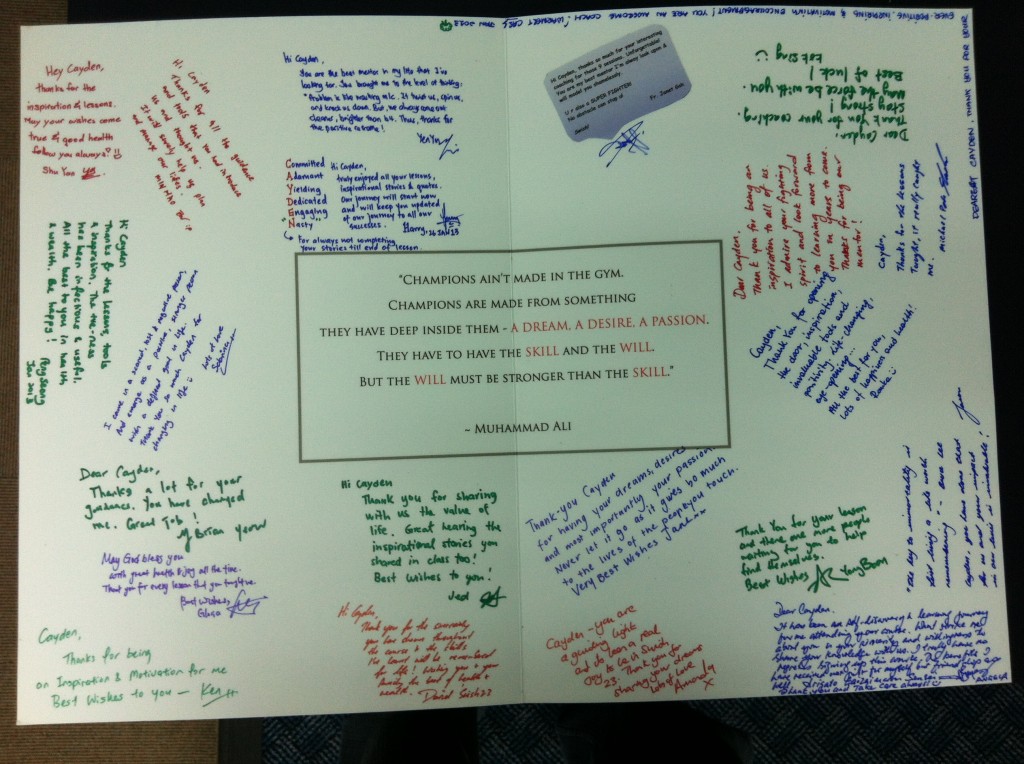 EVER-POSITIVE, INSPIRING & MOTIVATION ENCOURAGEMENT! YOU ARE AN AWESOME COACH!
DEAREST CAYDEN, THANK YOU FOR YOUR
Hey Cayden,
thanks for the
inspiration & lessons.
May your wishes come
true & good health
follow you always!
Shu Yan
Hi Cayden
Thanks for all the guidance
and tools that you had introduce
us and thought me.
Hi Cayden,
You are the best mentor in my life that I've
looking for. You brought me to the level of thinking:
"Problem is like washing m/c. It twist us, spin us,
and knock us down. But, we always come out
cleaner, brighter than b4. Thus, thanks for
the positive outcome!
Committed
Adamant
Yielding
Dedicated
Engaging
Nasty"
For always not completing
your stories till end of lesson.
Hi Cayden,
truly enjoyed all your lessons,
inspirational stories & quotes.
Our journey will start now
and will keep you updated
of our journey to all our
successes.
Harry, 26 JAN 13
Hi Cayden, thanks so much for your interesting
coaching for these 3 sessions. Unforgettable!
You are my best mentor I'm always look upon &
will model you immediately.
U r also a SUPER FIGHTER!
No obstacle can stop u!
Dear Cayden,
Thank you for your coaching.
Stay strong!
May the force be with you.
Best of luck!
Dear Cayden,
Thank you for being an
inspiration to all of us.
I admire your fighting
spirit and look forward
to learning more from
you in years to come.
Thanks for being our
mentor!
Cayden,
Thanks for the lessons
Taught, it really caught
me.
Hi Cayden
Thanks for the lessons, tools
& inspiration. The
has been infectious & useful.
All the best to you in health
& wealth. Be happy!
Peng Seong
Jan 2013
I came in a sound, but a negative mean,
And emerge as a positive, stronger person
with a different goal in life.
Thank you so much Cayden for
changing my life
Lots of love
"CHAMPIONS AIN'T MADE IN THE GYM.
CHAMPIONS ARE MADE FROM SOMETHING
THEY HAVE DEEP INSIDE THEM - A DREAM, A DESIRE, A PASSION.
THEY HAVE TO HAVE THE SKILL AND THE WILL.
BUT THE WILL MUST BE STRONGER THAN THE SKILL."
~ MUHAMMAD ALI
Cayden,
Thank You for opening
the door, inspiration,
invaluable tools and
positivity, life-changing,
eye-opening...
All the best for you,
Lots of happiness and health!
Dear Cayden,
Thanks a lot for your
guidance. You have changed
me. Great Job!
Brian Yeow
May God bless you
with great health & joy all the time.
Thank you for every lesson that you taught me.
Best wishes,
Cayden,
Thanks for being
an Inspiration & Motivation for me
Best Wishes to you — Ken
Hi Cayden
Thank you for sharing
with us the value of
life. Great hearing the
inspirational stories you
shared in class too!
Best Wishes to you!
Jed
Hi Cayden,
Thank you for the generosity
you have shown throughout
the course &
David
Thank-you Cayden
for having your dreams, desires
and most importantly, your passion
Never let it go as it gives so much
to the lives of the people you touch.
Very Best Wishes
Cayden - you are
a guiding light
and its been a real
joy to be in Such
23. Thank you for
sharing your dreams
lots of love
Amanda
X
Thank You for your lesson
and there are more people
waiting for you to help
find themselves.
Best Wishes
Yong Boon
"The key to immortality is
first living a life worth
remembering"
Cayden, you have done
Dear Cayden,
It has been an self-discovery & learning journey
for me attending your course.
Thank you and Take care always!